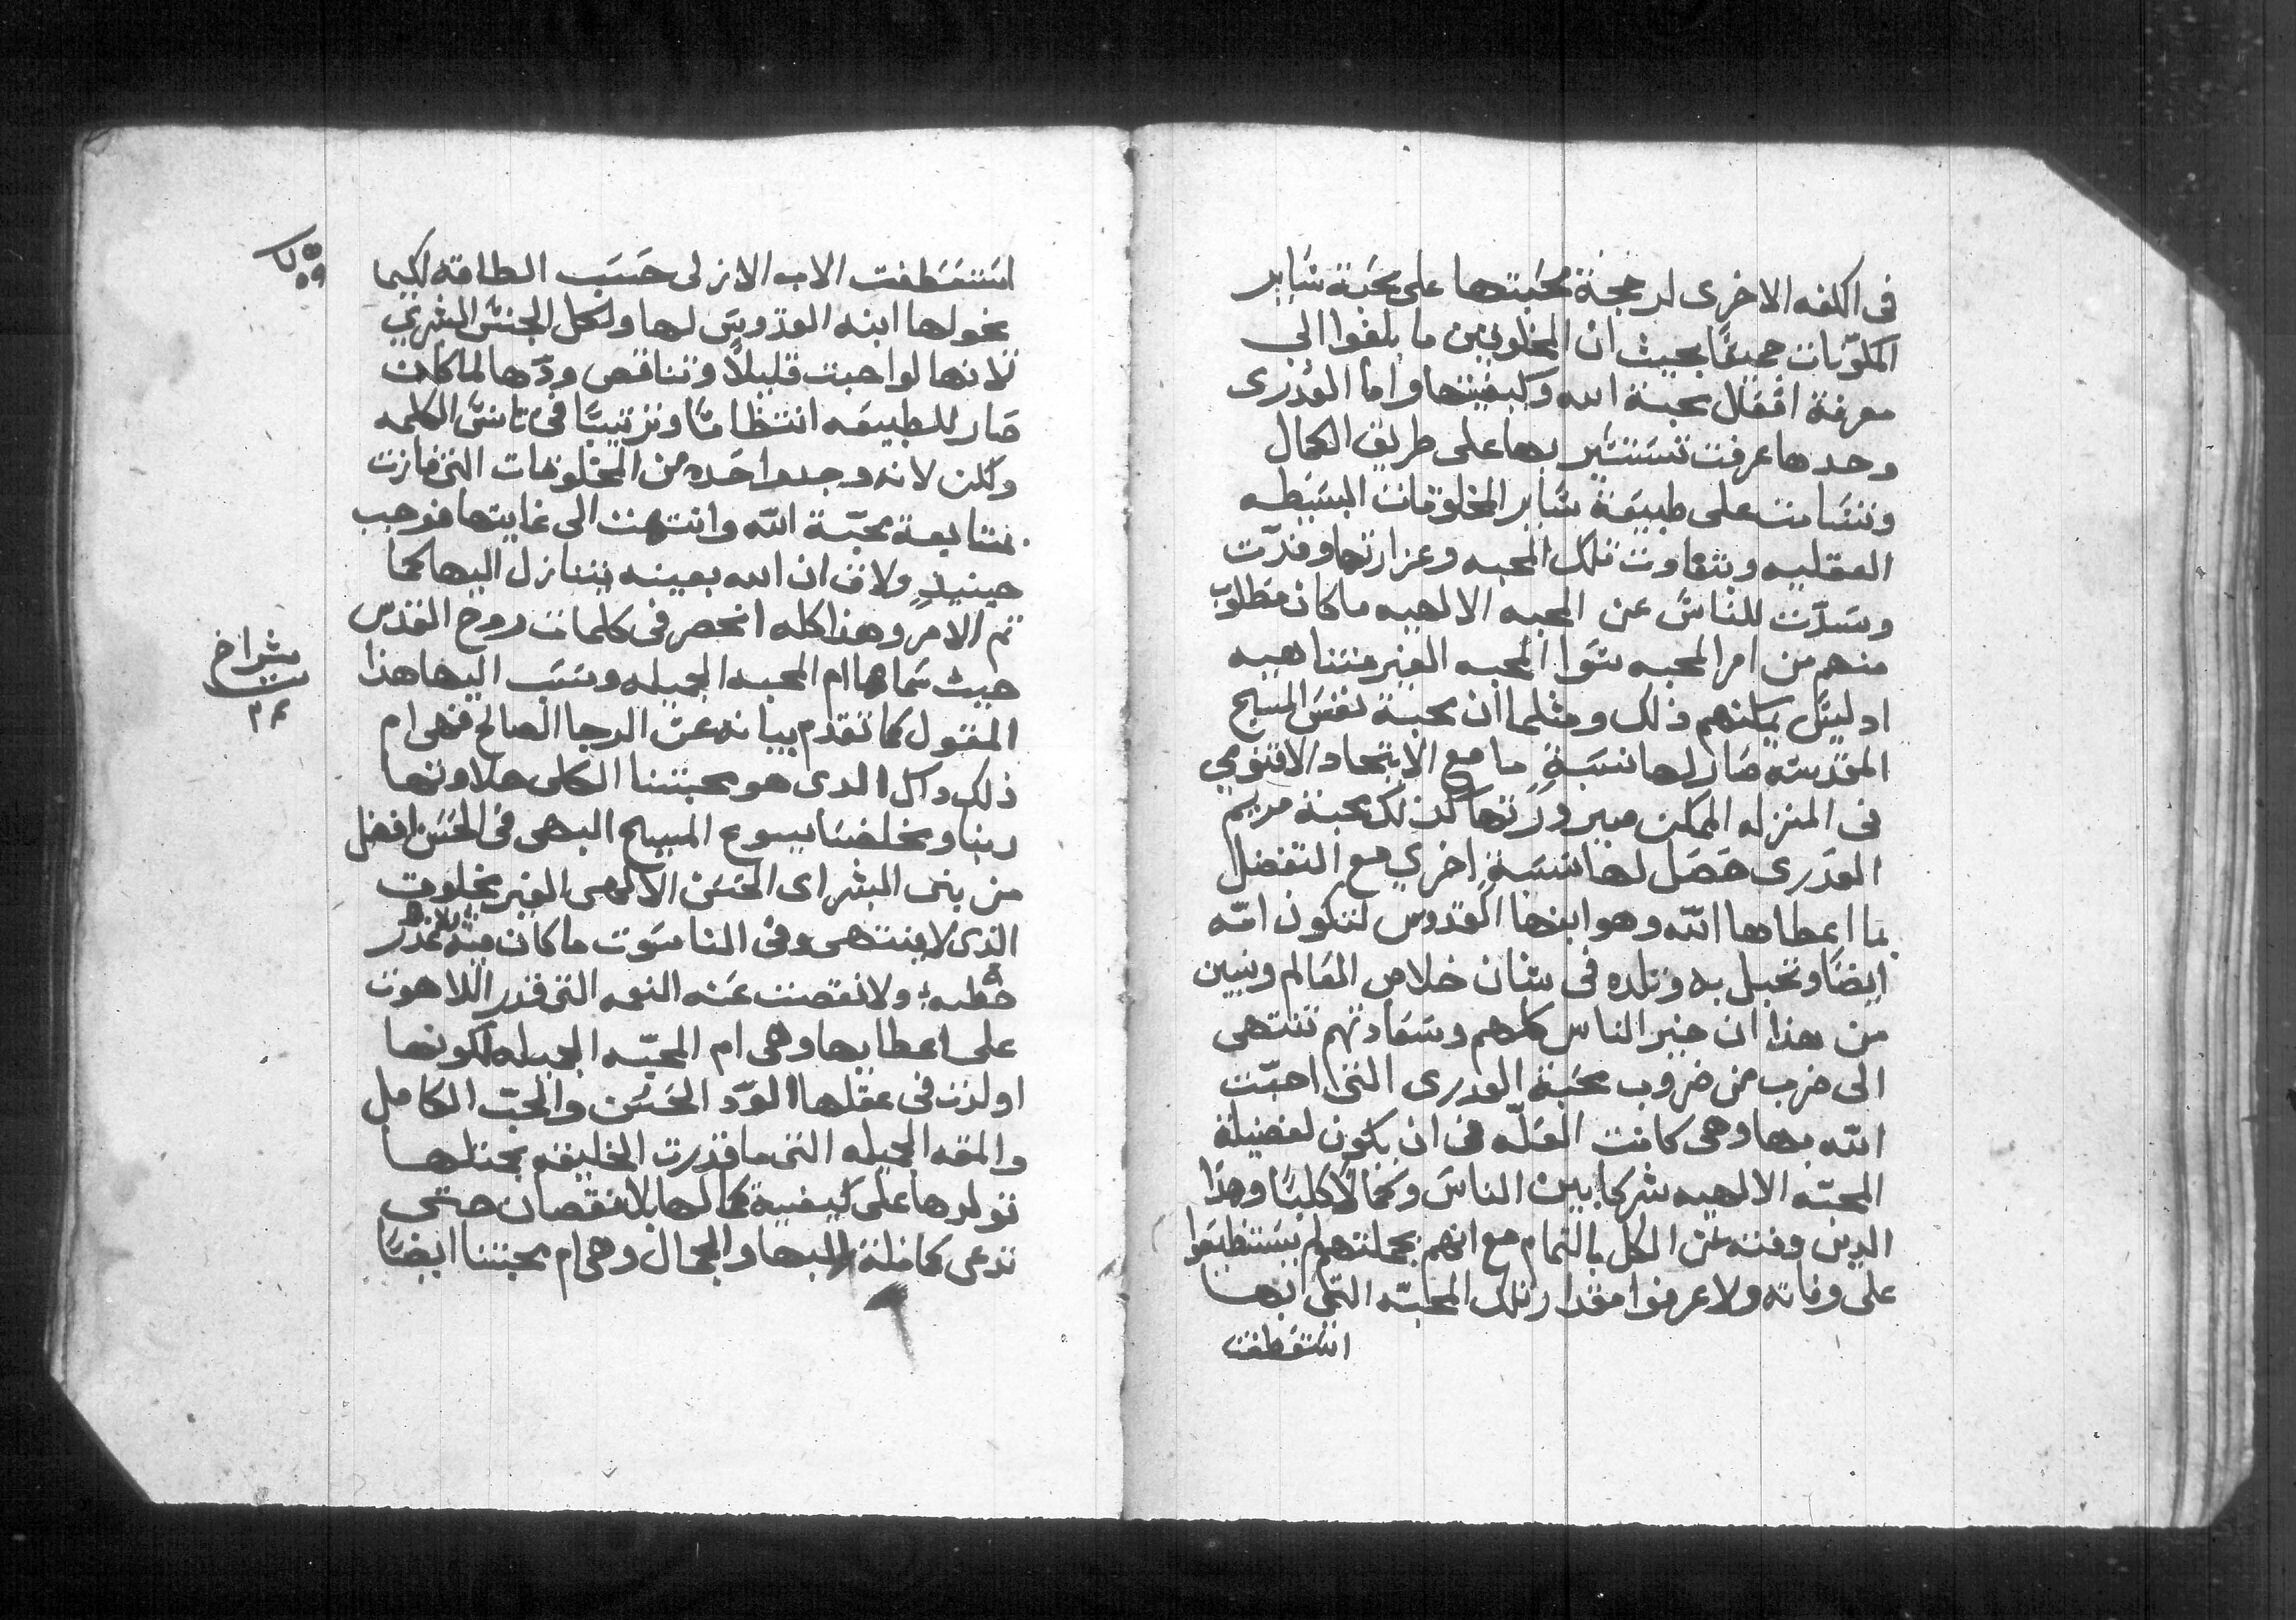 فى الكفه الاخرى لرجحة محبتها على محبة سَاير
المكوّنات جميعًا بحيث ان المخلوقين ما بلغوا الي
معرفة افعال محبة الله وكيفيتها واما العدرى
وحدها عرفت تستسير بها على طريق الكمال
وتسَامت على طبيعَة سَاير المخلوقات البسَيطه
العقليه وبتفاوت تلك المحبه وغزارتها وفّت
وسَدّت للناسَ عن المحبه الالهيه ما كان مطلوب
منهم من امر المحبه سَوا المحبه الغير متناهيه
اد ليسَ يمكنهم ذلك ومثلما ان محبة نفسَ المسيح
المقدسَه صَار لها نسَبةٍ ما مع الاتحاد الاقنومي
فى المنزله الممكن صيرورتها كدلك محبة مريم
العدَرى حَصَل لها نسَبةٍ اخري مع التفضل
بما اعطاها اللّه وهو ابنها القدوس لتكون امّه
ايضًا وتحبل به وتلده فى شان خلاص العَالم ويبين
من هذا ان خير الناس كلهم وسَعَادتهم تنتهى
الى ضرب من ضروب محبة العدرى التى احبّت
اللّه بها وهى كانت العلّه فى ان يكون لفضيلة
المحبّه الالهيه شركا بين الناسَ وكمالاً كليًا وهذا
الدين وفته عن الكل بالتمام مع انهم بجملتهم لم يسَتطيعَوا
على وفاته ولا عرفوا مقدار تلك المحبّه التى ابها
استعَطفت
اسَتعَطفت الاب الازلى حسَب الطاقه لكيما
يخولها ابنه القدوسَ لها ولكل الجنسَ البشري
لانها لو احبت قليلاً وتناقص ودّها لما كان
صَار للطبيعَه انتظامًا وترتيبًا فى تانسَ الكلمه
ولكن لانه وجد واحَده من المخلوقات التى فازت
بمتابعة محبّة اللّه وانتهت الى غايتها فوجب
حينيدٍ ولاق ان الله بعينه يتنازل اليها كما
تم الامر وهذا كله انحصر فى كلمات روح القدس
حيث سَماها ام المحبه الجميله ونسَب اليها هذا
المقول كما تقدم بيانه عن الرجا الصالح فهى ام
ذلك داك الدى هو محبتنا الكلى حلاوتها
ربنا ومخلصَنا يسوع المسيح البهى فى الحسَن افضل
من بنى البشر اى الحسَن الالهى الغير مخلوق
الذى لا ينتهى وفى الناسَوت ما كان فيه
خطيه ولا نقصت عَنه النعمه التى قدر اللاهوت
على اعطايها وهى ام المحبّه الجميله لكونها
اولدت فى عقلها الودّ الحَسَن والحبّ الكامل
والمقه الجميله التى ما قدرت الخليقه بجملتها
تولدها على كيفية كمالها بلا نقصان حتى
تدعى كاملة البها والجمال وهى ام محبتنا ايضًا
يشراخ
٢٤